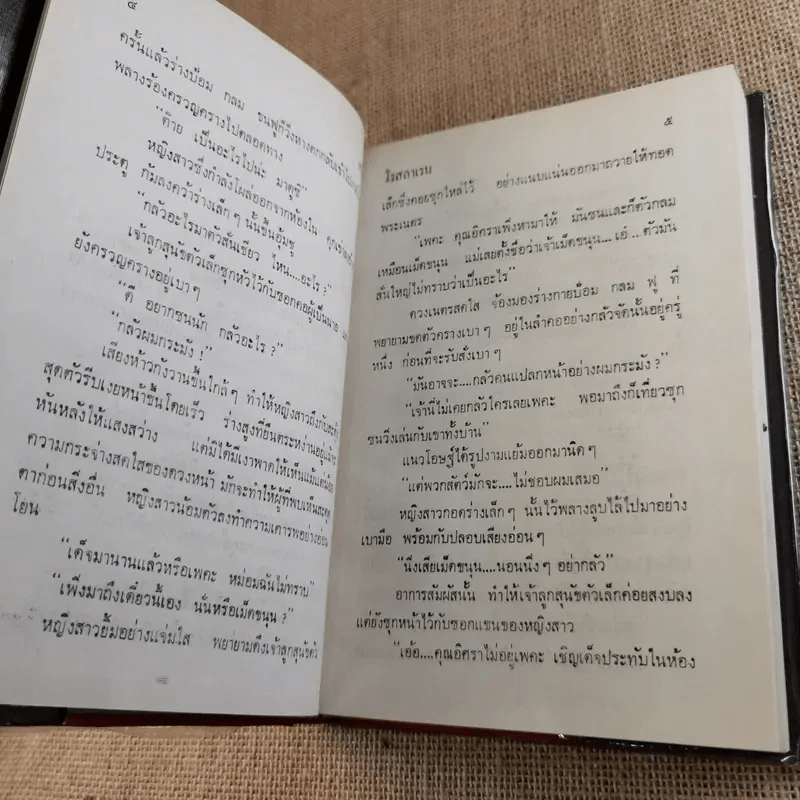 ๔
ครั้นแล้วร่างป้อม กลม ขนฟูก็วิ่งหางตกกลับเข้าไป
พลางร้องครวญครางไปตลอดทาง
“ต๊าย เป็นอะไรไปน่ะ มาดูซิ”
หญิงสาวซึ่งกำลังโผล่ออกจากห้องใน
ประตู ก้มลงคว้าร่างเล็กๆ นั้นขึ้นอุ้มชู
“กลัวอะไรมาตัวสั่นเชียว ไหน....อะไร ?”
เจ้าลูกสุนัขตัวเล็กซุกหัวไว้กับซอกคอผู้เป็นนาย
ยังครวญครางอยู่เบาๆ
“ดี อยากซนนัก กลัวอะไร ?”
“กลัวผมกระมัง !”
เสียงห้าวกังวานขึ้นใกล้ๆ ทำให้หญิงสาวถึงกับสะดุ้ง
สุดตัวรีบเงยหน้าขึ้นโดยเร็ว ร่างสูงที่ยืนตระหง่านอยู่
หันหลังให้แสงสว่าง แต่มิได้มีเงาพาดให้เห็นแม้แต่น้อย
ความกระจ่างสดใสของดวงหน้า มักจะทำให้ผู้ที่พบเห็นสะดุด
ตาก่อนสิ่งอื่น หญิงสาวน้อมตัวลงทำความเคารพอย่างอ่อน
โยน
“เด็จมานานแล้วหรือเพคะ หม่อมฉันไม่ทราบ”
“เพิ่งมาถึงเดี๋ยวนี้เอง นั่นหรือเม็ดขนุน ?”
หญิงสาวยิ้มอย่างแจ่มใส พยายามดึงเจ้าลูกสุนัขตัว
๕
โรสลาเรน
เล็กซึ่งคอยซุกไหล่ไว้ อย่างแนบแน่นออกมาถวายให้ทอด
พระเนตร
“เพคะ คุณอิศราเพิ่งหามาให้ มันซนและก็ตัวกลม
เหมือนเม็ดขนุน แม่เลยตั้งชื่อว่าเจ้าเม็ดขนุน....เอ๋... ตัวมัน
สั่นใหญ่ไม่ทราบว่าเป็นอะไร”
ดวงเนตรสดใส จ้องมองร่างกายป้อม กลม ฟู ที่
พยายามขดตัวครางเบาๆ อยู่ในลำคออย่างกลัวจัดนั้นอยู่ครู่
หนึ่ง ก่อนที่จะรับสั่งเบาๆ
“มันอาจจะ....กลัวคนแปลกหน้าอย่างผมกระมัง ?”
“เจ้านี่ไม่เคยกลัวใครเลยเพคะ พอมาถึงก็เที่ยวซุก
ซนวิ่งเล่นกับเขาทั้งบ้าน”
แนวโอษฐ์ได้รูปงามแย้มออกมานิดๆ
“แต่พวกสัตว์มักจะ....ไม่ชอบผมเสมอ”
หญิงสาวกอดร่างเล็กๆ นั้นไว้พลางลูบไล้ไปมาอย่าง
เบามือ พร้อมกับปลอบเสียงอ่อนๆ
“นิ่งเสียเม็ดขนุน....นอนนิ่งๆ อย่ากลัว”
อาการสัมผัสนั้น ทำให้เจ้าลูกสุนัขตัวเล็กค่อยสงบลง
แต่ยังซุกหน้าไว้กับซอกแขนของหญิงสาว
“เอ้อ....คุณอิศราไม่อยู่เพคะ เชิญเด็จประทับในห้อง